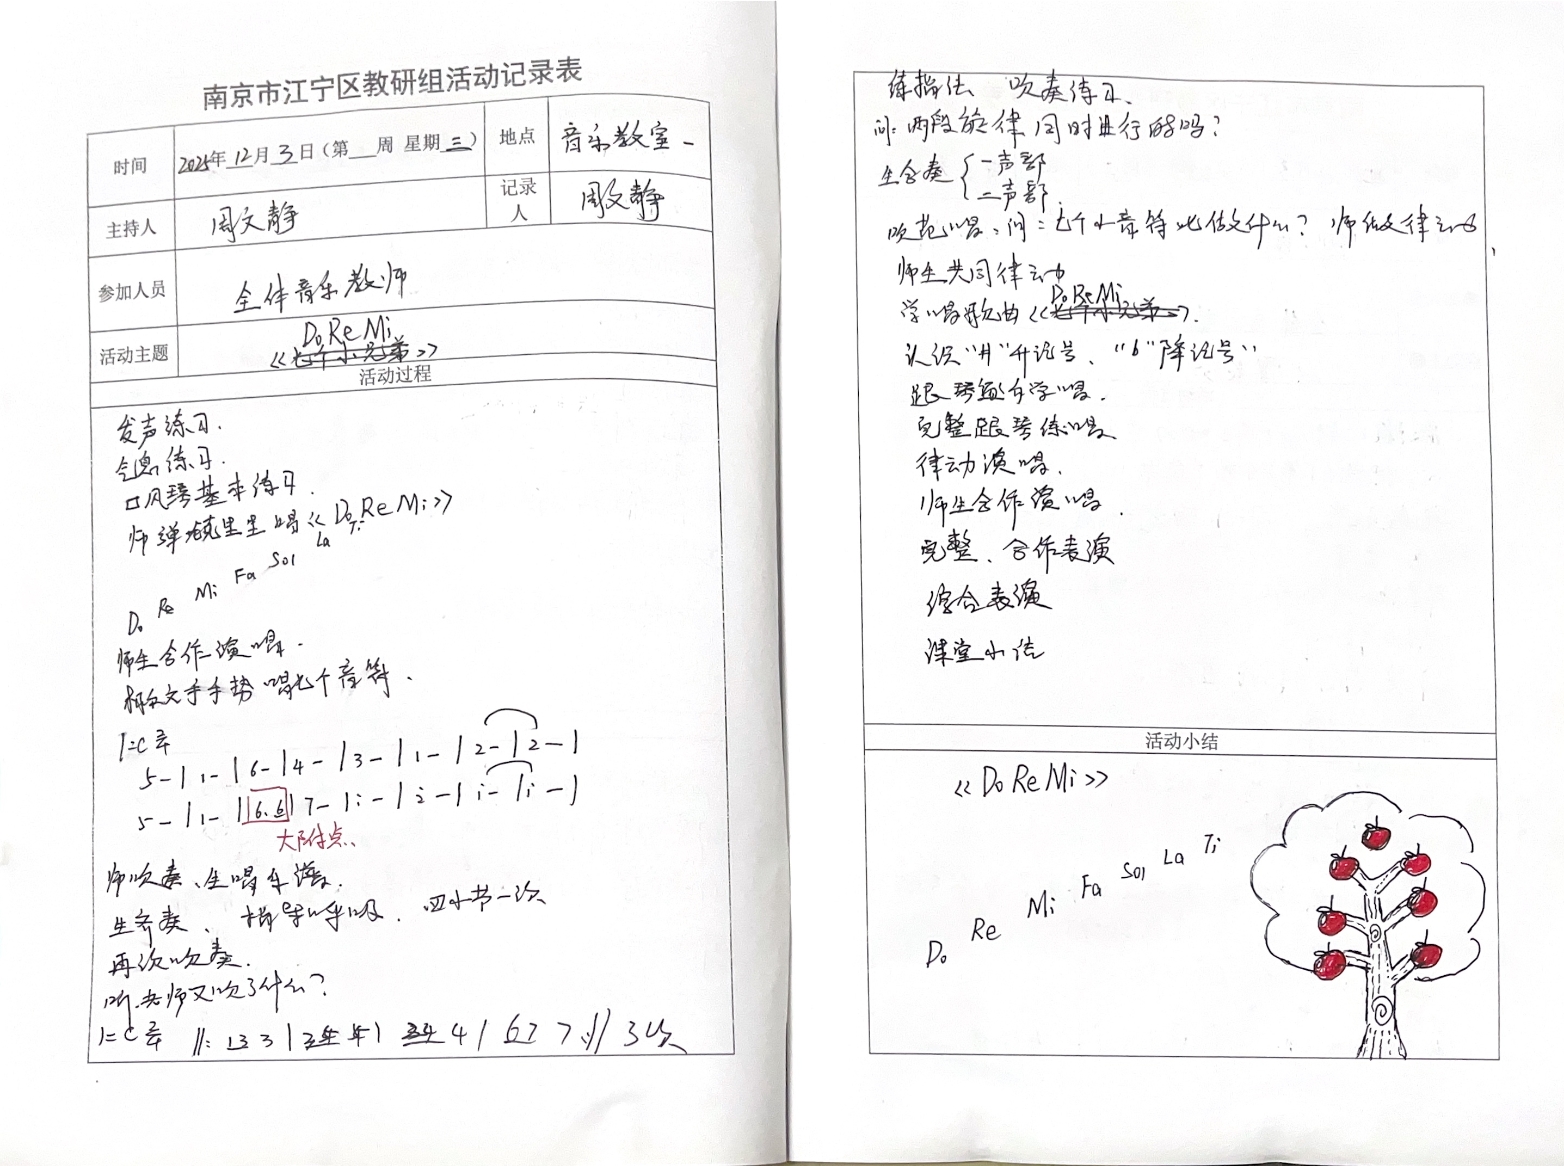 南京市江宁区教研组活动记录表
时间 2025年12月3日(第__周 星期三) 地点 音乐教室一
主持人 周文静 记录人 周文静
参加人员 全体音乐教师
活动主题 《Do Re Mi》
活动过程
发声练习.
气息练习.
口风琴基本练习.
师弹 唱《Do Re Mi》
Do Re Mi Fa Sol La Ti
师生合作演唱.
柯尔文手手势唱七个音符.
1=C
5 - | 1 - | 6 - | 4 - | 3 - | 1 - | 2 - | 2 - |
5 - | 1 - | 6. 6 | 7 - | i - | 2 - | i - | i - |
大附点、
师吹奏、生唱乐谱.
生齐奏、指导呼吸. 四小节一次
再次吹奏.
听老师又吹了什么?
1=C ‖: 1 3 3 | 4 | 6 7 7 :‖ 3次
练指法 吹奏练习.
问:两段旋律同时进行的吗?
生合奏 { 一声部
二声部.
问:七个小音符 做什么? 师做律动
师生共同律动
学唱歌曲《Do Re Mi》.
认识"#"升记号、"b"降记号"
跟琴 学唱.
完整跟琴练唱
律动演唱.
师生合作演唱.
完整、合作表演
综合表演
课堂小结
活动小结
《Do Re Mi》
Do Re Mi Fa Sol La Ti